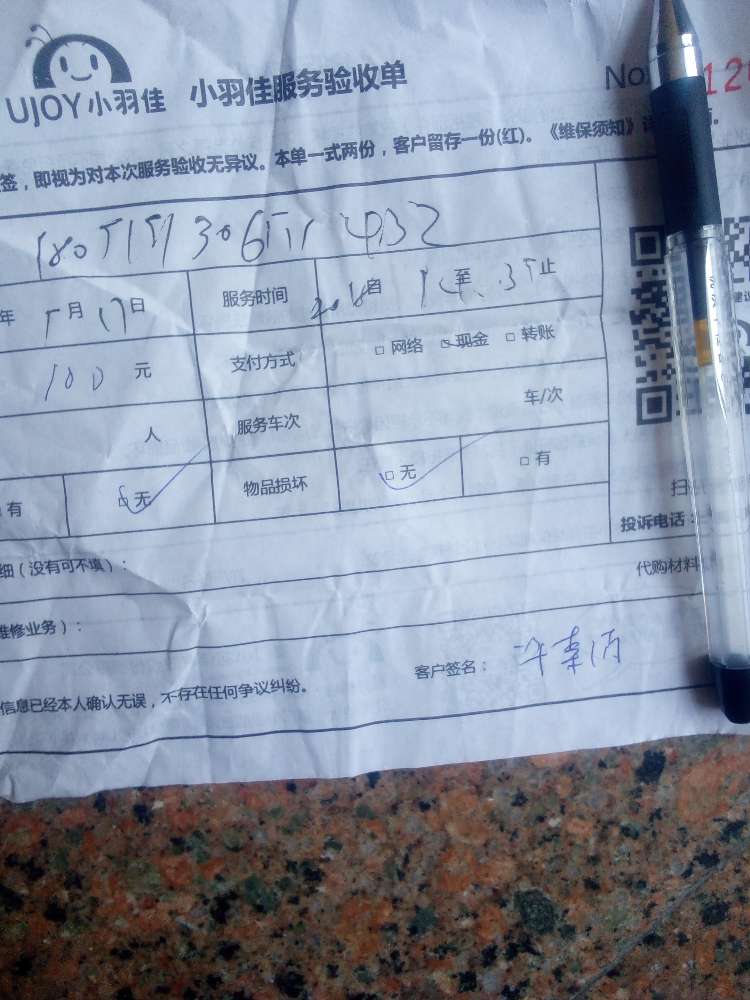 UJOY小羽佳 小羽佳服务验收单 No 12
签，即视为对本次服务验收无异议。本单一式两份，客户留存一份(红)。《维保须知》
年 5月17日 服务时间 自 至 止
100 元 支付方式 □网络 □现金 □转账
人 服务车次 车/次
有 □无 物品损坏 □无 □有
扫
投诉电话：
细（没有可不填）： 代购材料
维修业务）：
信息已经本人确认无误，不存在任何争议纠纷。 客户签名：